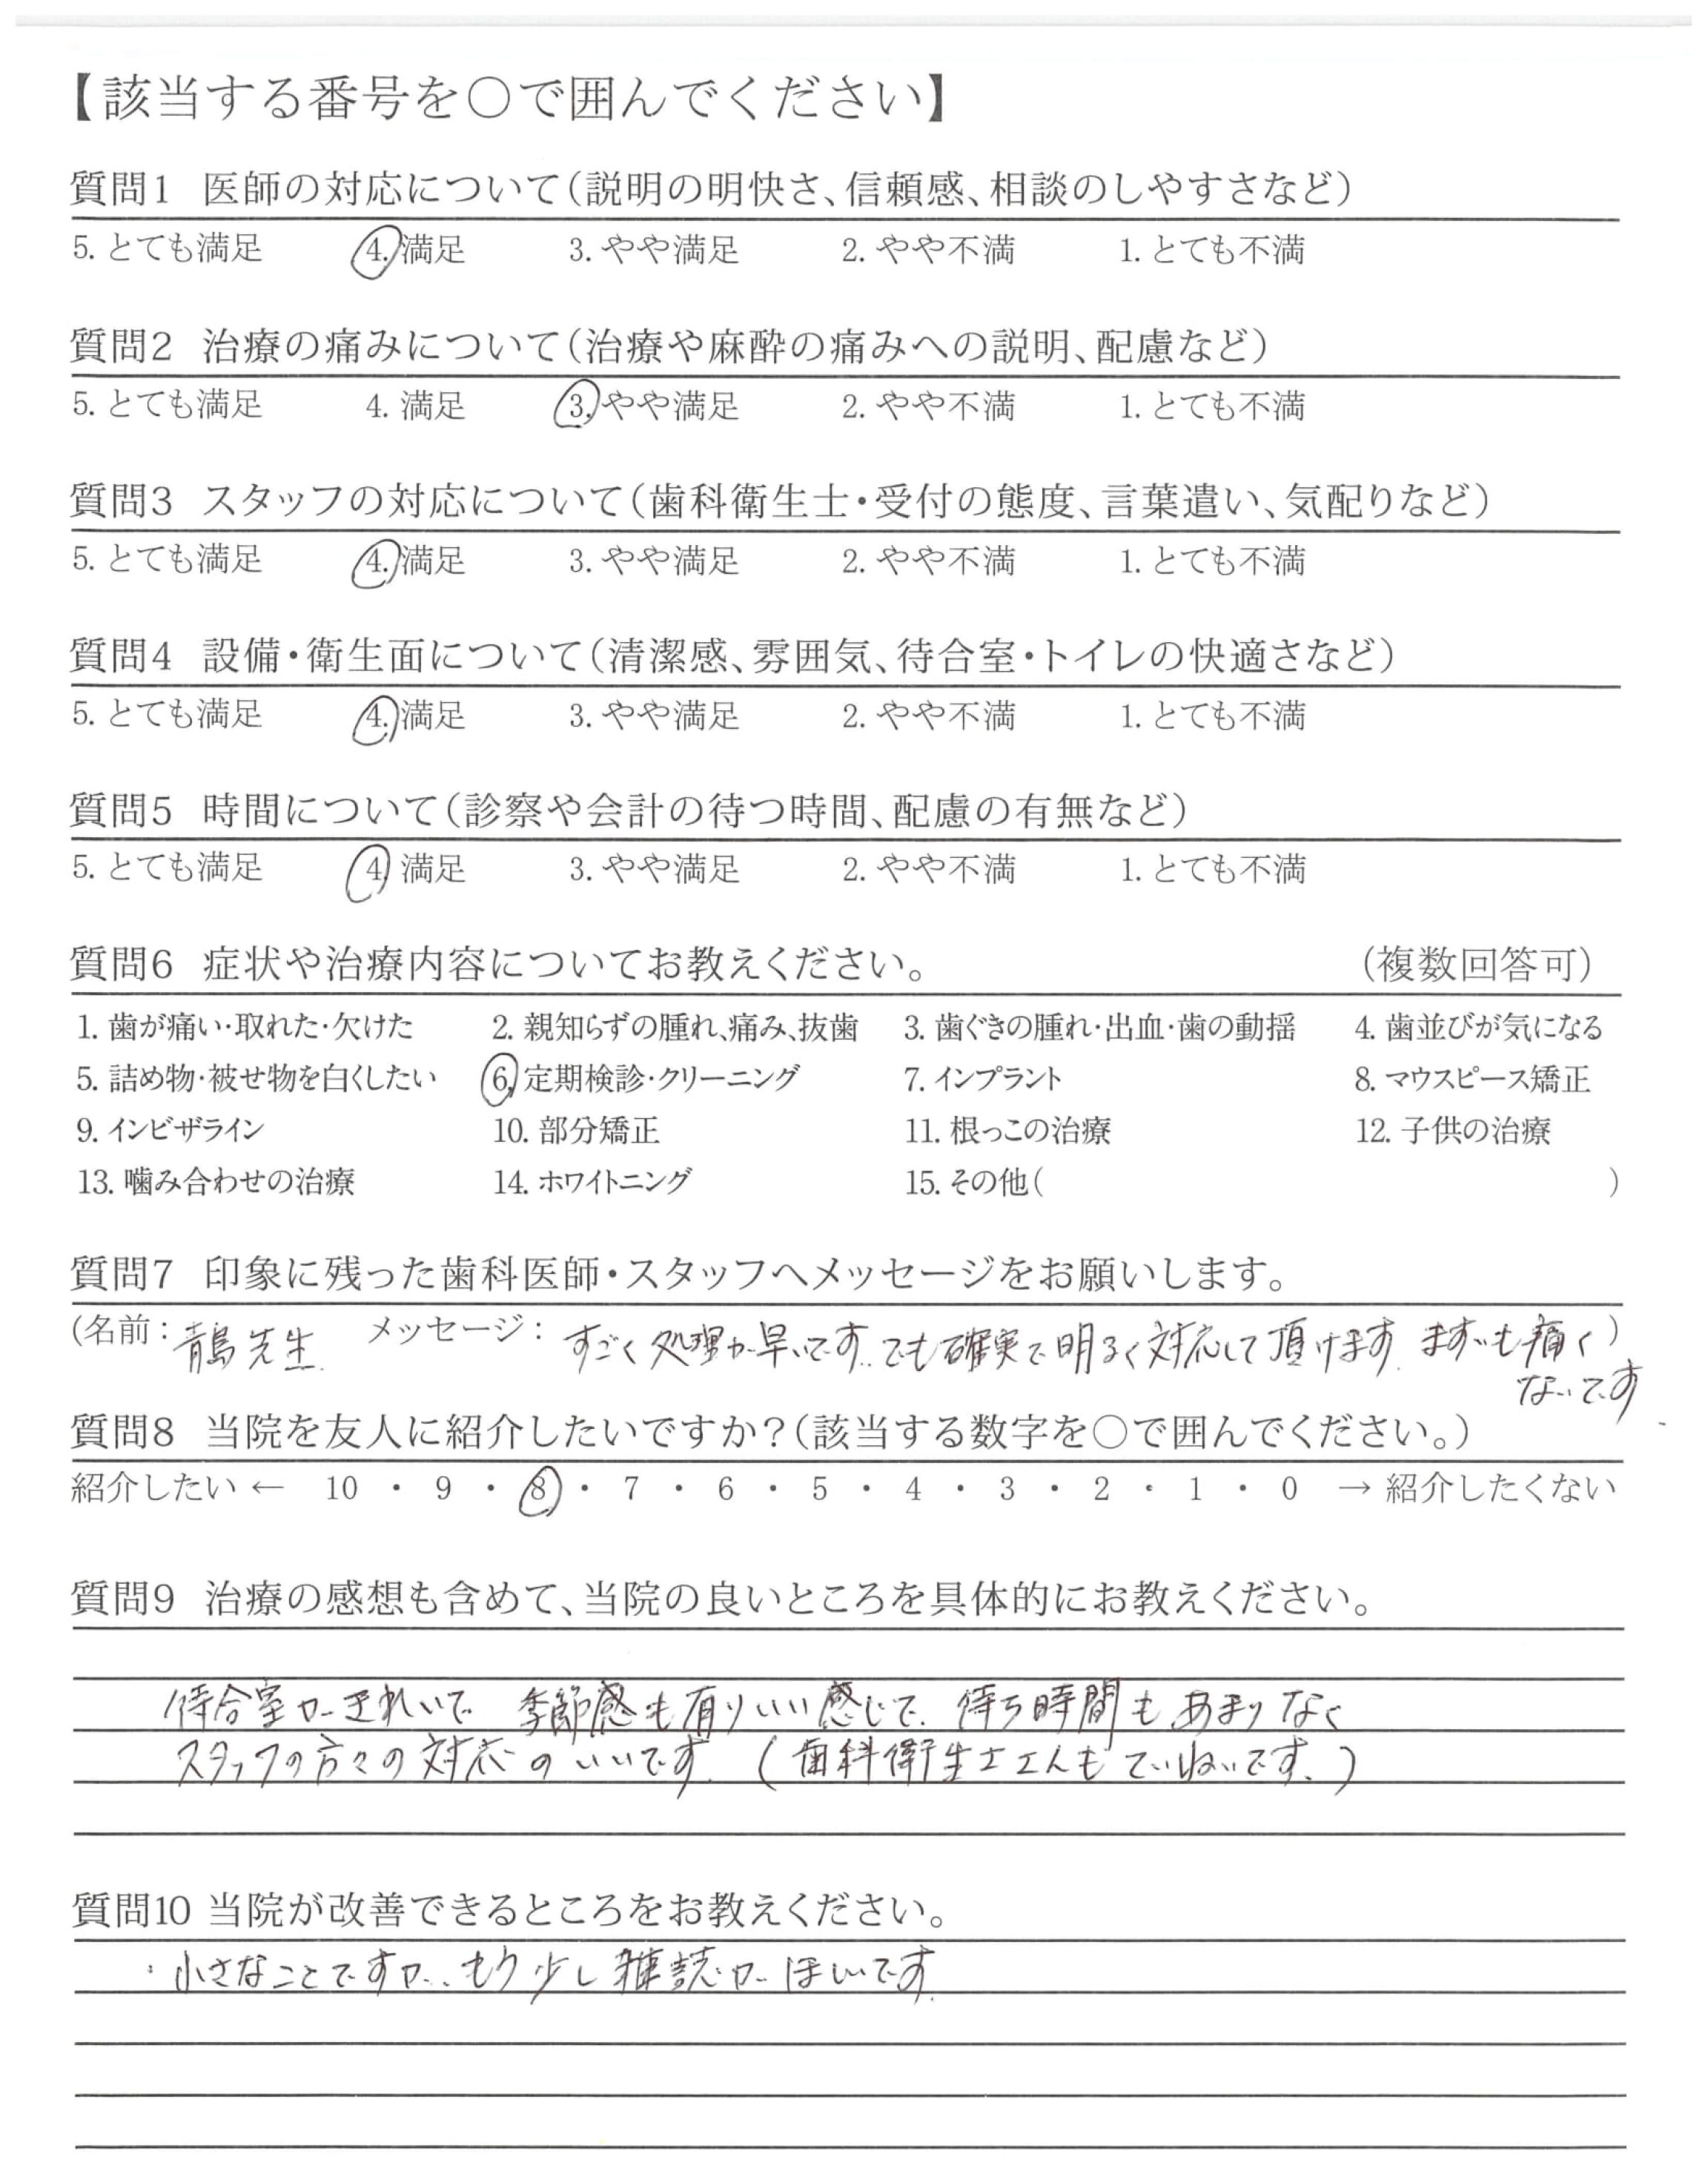 【該当する番号を○で囲んでください】
質問1 医師の対応について(説明の明快さ、信頼感、相談のしやすさなど)
5. とても満足 4. 満足 3. やや満足 2. やや不満 1. とても不満
質問2 治療の痛みについて(治療や麻酔の痛みへの説明、配慮など)
5. とても満足 4. 満足 3. やや満足 2. やや不満 1. とても不満
質問3 スタッフの対応について(歯科衛生士・受付の態度、言葉遣い、気配りなど)
5. とても満足 4. 満足 3. やや満足 2. やや不満 1. とても不満
質問4 設備・衛生面について(清潔感、雰囲気、待合室・トイレの快適さなど)
5. とても満足 4. 満足 3. やや満足 2. やや不満 1. とても不満
質問5 時間について(診察や会計の待つ時間、配慮の有無など)
5. とても満足 4. 満足 3. やや満足 2. やや不満 1. とても不満
質問6 症状や治療内容についてお教えください。 (複数回答可)
1. 歯が痛い・取れた・欠けた 2. 親知らずの腫れ、痛み、抜歯 3. 歯ぐきの腫れ・出血・歯の動揺 4. 歯並びが気になる
5. 詰め物・被せ物を白くしたい 6. 定期検診・クリーニング 7. インプラント 8. マウスピース矯正
9. インビザライン 10. 部分矯正 11. 根っこの治療 12. 子供の治療
13. 噛み合わせの治療 14. ホワイトニング 15. その他( )
質問7 印象に残った歯科医師・スタッフへメッセージをお願いします。
(名前: 青島先生. メッセージ: すごく処理が早いです.. でも確実で明るく対応して頂けます. ますいも痛く)
ないです.
質問8 当院を友人に紹介したいですか?(該当する数字を○で囲んでください。)
紹介したい ← 10 ・ 9 ・ 8 ・ 7 ・ 6 ・ 5 ・ 4 ・ 3 ・ 2 ・ 1 ・ 0 → 紹介したくない
質問9 治療の感想も含めて、当院の良いところを具体的にお教えください。
待合室がきれいで 季節感も有りいい感じで. 待ち時間もあまりなく
スタッフの方々の対応のいいです. (歯科衛生士さんもていねいです.)
質問10 当院が改善できるところをお教えください。
: 小さなことですが... もう少し雑誌がほしいです.